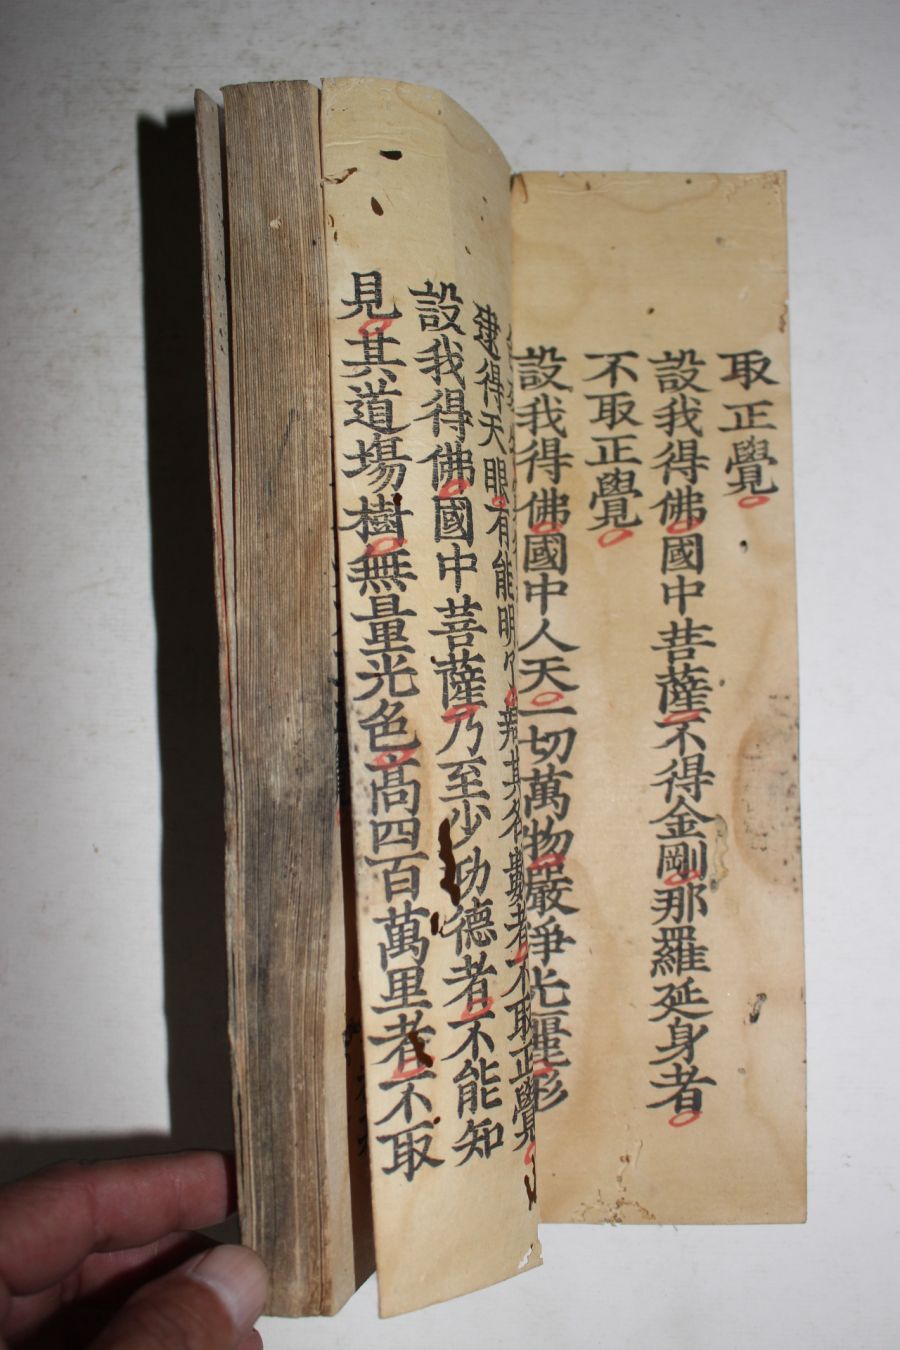 取正覺
設我得佛國中菩薩不得金剛那羅延身者
不取正覺
設我得佛國中人天一切萬物嚴淨光麗形
建得天眼有能明了辯其名數者不取正覺
設我得佛國中菩薩乃至少功德者不能知
見其道場樹無量光色高四百萬里者不取